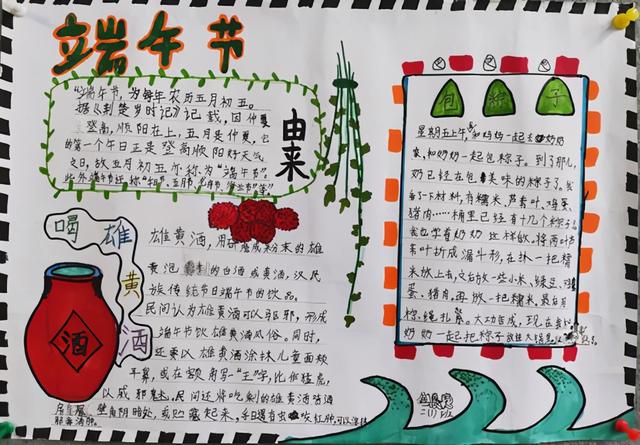 立端午节
"端午节,为每年农历五月初五。
据《荆楚岁时记》记载,因仲夏
登高,顺阳在上,五月是仲夏,它
的第一个午日正是登高顺阳好天气
之日,故五月初五亦称为"端午节"。
此外端午节还称"午日节、五月节
由来
喝雄黄酒
酒
雄黄酒,用研磨成粉末的雄
黄泡制的白酒或黄酒,汉民
族传统节日端午节的饮品。
民间认为雄黄酒可以驱邪,形成
端午节饮雄黄酒风俗。同时,
还要以雄黄酒涂抹儿童面颊
耳鼻,或在额角写"王"字,比作猛虎,
以威邪魅,民间还将吃剩的雄黄酒
壁角阴暗处,或贮藏起来,
包粽子
星期五上午,和妈妈一起去奶奶
家,和奶奶一起包粽子。到了那儿,
奶已经在包美味的粽子了。我
了一下材料,有糯米、芦苇叶、鸡蛋、
猪肉……桶里已经有十几个粽子
我也学着奶奶这样做,将两片苇
苇叶折成漏斗形,在抹一把糯
米放上去,之后放一些小米、绿豆、鸡
蛋、猪肉,再放一把糯米,最后用
棕绳扎紧。大功告成,现在
奶奶一起把粽子放进大锅